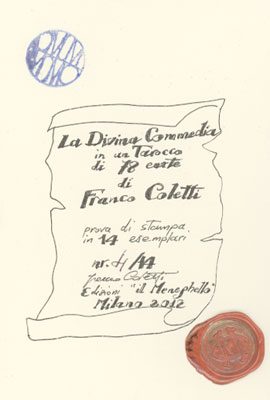 La Divina Commedia
in un Tarocco
di 78 carte
di
Franco Coletti
prova di stampa
in 14 esemplari
nr. 4/14
Franco Coletti
Edizioni "il Meneghello"
Milano 2012